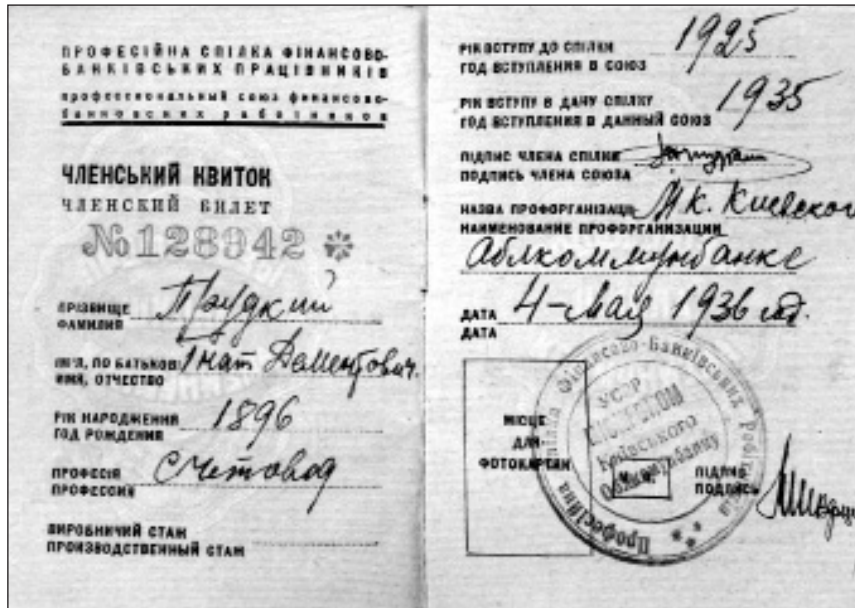 ПРОФЕСІЙНА СПІЛКА ФІНАНСОВО-
БАНКІВСЬКИХ ПРАЦІВНИКІВ
профессиональный союз финансово-
банковских работников
ЧЛЕНСЬКИЙ КВИТОК
ЧЛЕНСКИЙ БИЛЕТ
№128942
ПРІЗВИЩЕ
ФАМИЛИЯ
Прудкий
ІМ'Я, ПО БАТЬКОВІ
ИМЯ, ОТЧЕСТВО
Гнат Дементович.
РІК НАРОДЖЕННЯ
ГОД РОЖДЕНИЯ
1896
ПРОФЕСІЯ
ПРОФЕССИЯ
Счетовод
ВИРОБНИЧИЙ СТАЖ
ПРОИЗВОДСТВЕННЫЙ СТАЖ
РІК ВСТУПУ ДО СПІЛКИ
ГОД ВСТУПЛЕНИЯ В СОЮЗ
1925
РІК ВСТУПУ В ДАНУ СПІЛКУ
ГОД ВСТУПЛЕНИЯ В ДАННЫЙ СОЮЗ
1935
ПІДПИС ЧЛЕНА СПІЛКИ
ПОДПИСЬ ЧЛЕНА СОЮЗА
НАЗВА ПРОФОРГАНІЗАЦІЇ
НАИМЕНОВАНИЕ ПРОФОРГАНИЗАЦИИ
М.К. Киевского
Облкоммунбанке
ДАТА
ДАТА
4-Мая 1936
МІСЦЕ
ДЛЯ
ФОТОКАРТКИ
Професійна Спілка Фінансово-Банківських Робітників
УСРР
Київського
ПІДПИС
ПОДПИСЬ